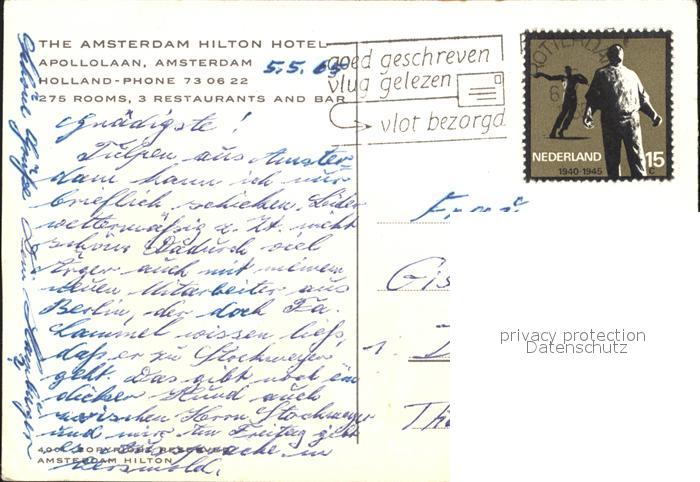 THE AMSTERDAM HILTON HOTEL
APOLLOLAAN, AMSTERDAM
5.5.65
HOLLAND-PHONE 73 06 22
275 ROOMS, 3 RESTAURANTS AND BAR
goed geschreven
vlug gelezen
vlot bezorgd
ROTTERDAM
NEDERLAND
15 C
1940-1945
Gnädigste!
Tulpen aus Amster-
dam kann ich nur
brieflich schicken. Leider
wettermäßig z. Zt. nicht
schön. Dadurch viel
Ärger auch mit meinem
neuen Mitarbeiter aus
Berlin, der doch Fa.
Lammel wissen ließ,
daß er zu Stockmeyer
geht. Das gibt noch ein
dicker Hund auch
zwischen Herrn Stockmeyer
und mir. Am Freitag geht
in
Versmold.
Schöne Grüße Dein
Gis
privacy protection
Datenschutz
1.
COPYRIGHT RESERVED
AMSTERDAM HILTON